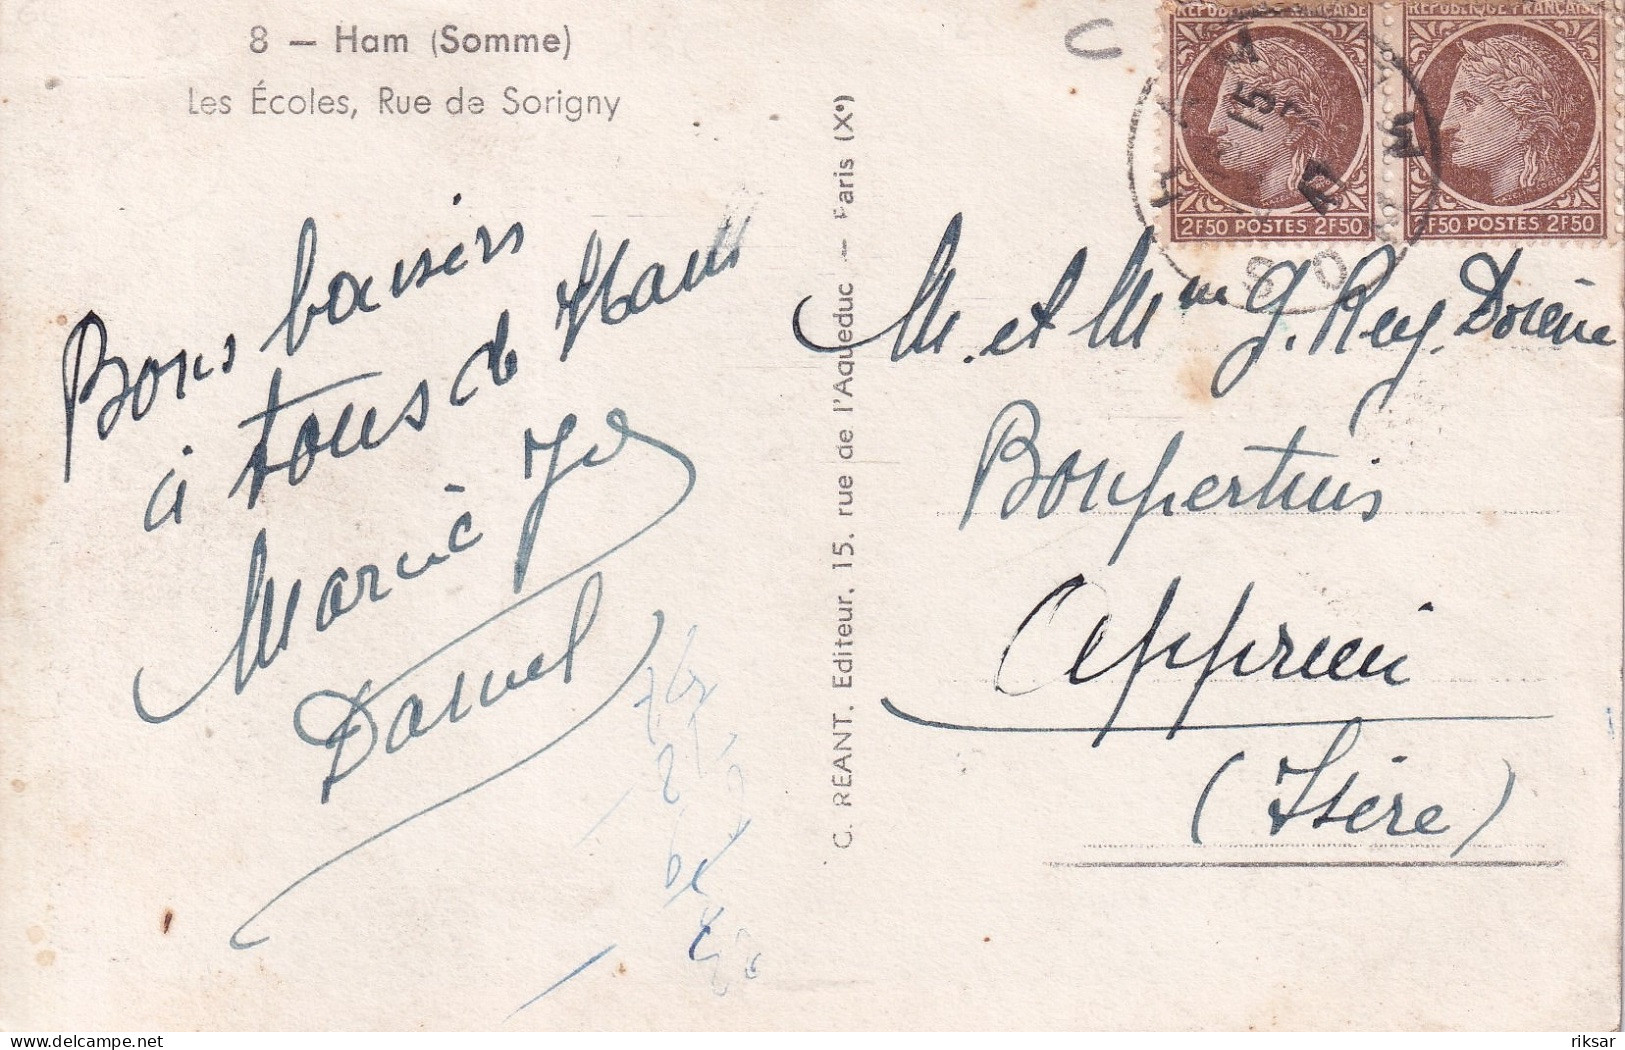 8 — Ham (Somme)
Les Écoles, Rue de Sorigny
Bons baisers
à tous de Ham
Marcie Jo
Daniel
C. REANT. Editeur, 15. rue de l'Aqueduc — Paris (Xe)
REPUBLIQUE FRANÇAISE
2F50 POSTES 2F50
REPUBLIQUE FRANÇAISE
2F50 POSTES 2F50
HAM
15
47
SOMME
M. et Mme G. Rey.
Bonpertuis
Apprieu
(Isère)
riksar